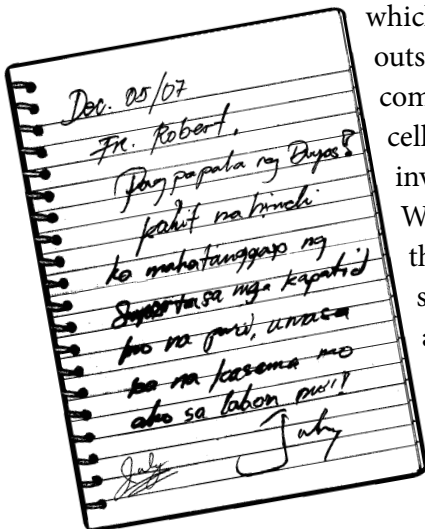 Dec. 05/07
Fr. Robert,
Pagpapala ng Diyos!
kahit na hindi
ka makatanggap ng
Suporta sa mga kapatid
mo na pari, umasa
ka na kasama mo
ako sa laban pari!
which
outs
com
cell
inv
W
th
s
a